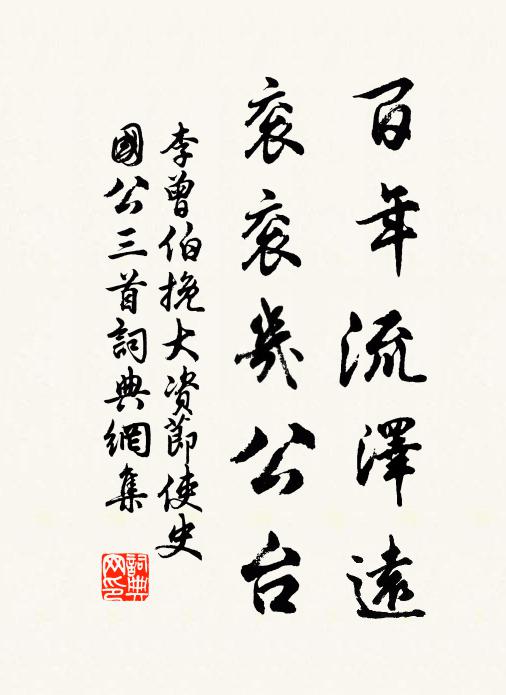 百年流澤遠
袞袞幾公台
李曾伯挽大資節使史
國公三首詞典網集
詞典
网印